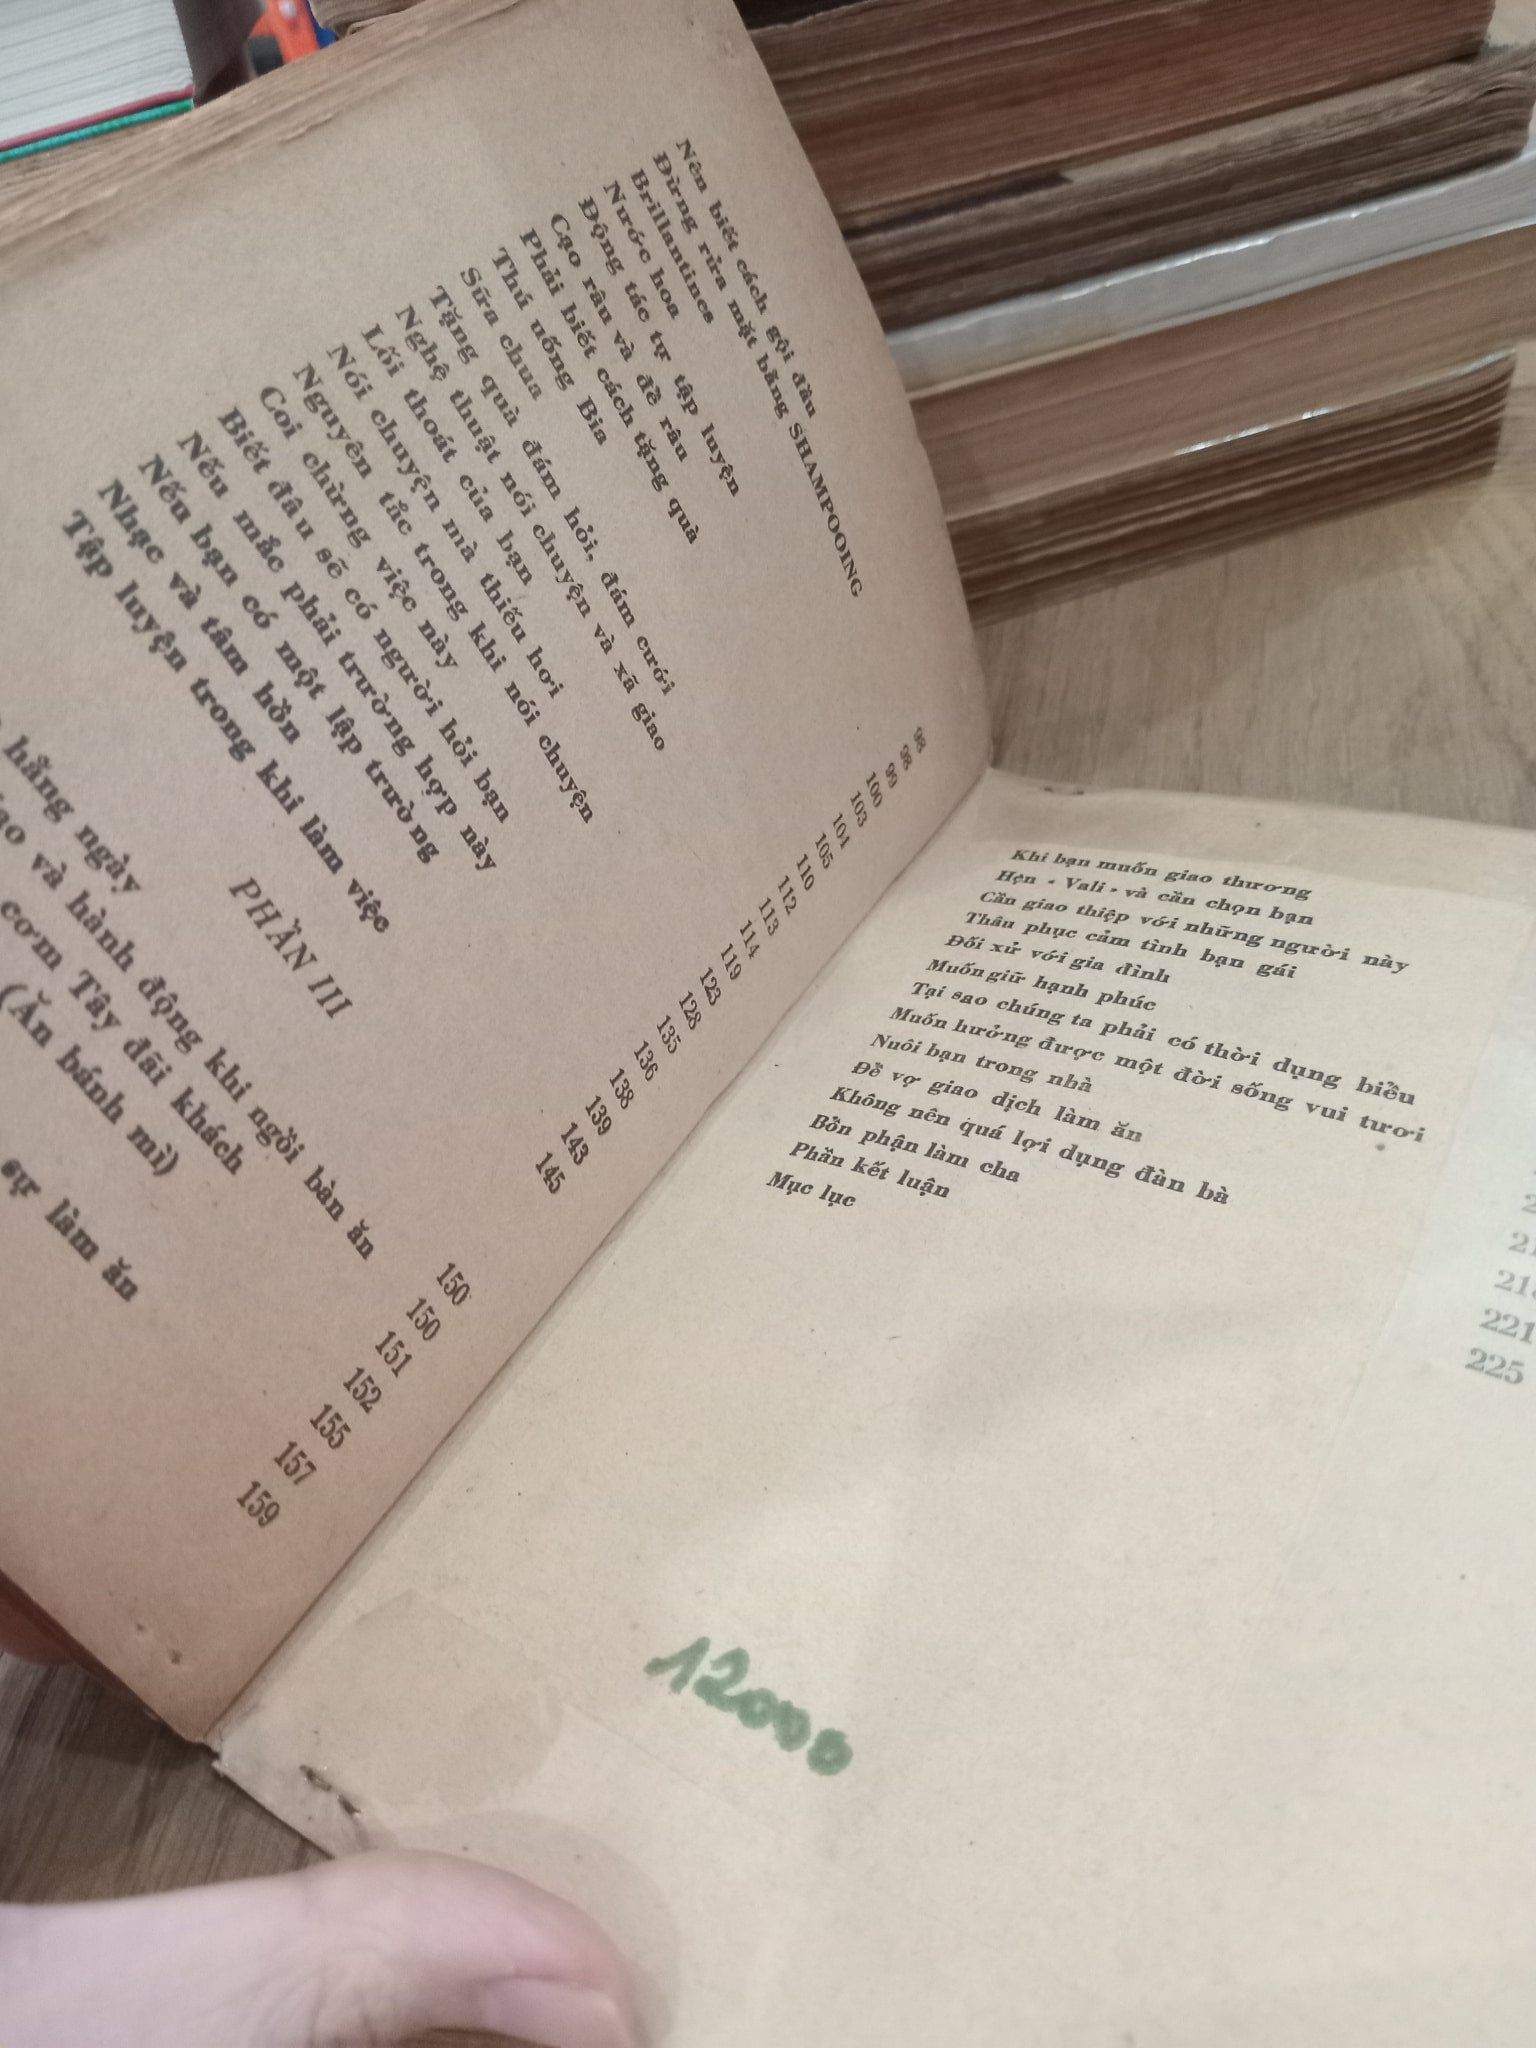 Nên biết cách gội đầu 98
Đừng rửa mặt bằng SHAMPOOING 98
Brillantines 99
Nước hoa 100
Động tác tự tập luyện 103
Cạo râu và để râu 104
Phải biết cách tặng quà 105
Thú uống Bia 110
Sữa chua 112
Tặng quà đám hỏi, đám cưới 113
Nghệ thuật nói chuyện và xã giao 114
Lối thoát của bạn 119
Nói chuyện mà thiếu hơi 123
Nguyên tắc trong khi nói chuyện 128
Coi chừng việc này 135
Biết đâu sẽ có người hỏi bạn 136
Nếu mắc phải trường hợp này 138
Nếu bạn có một lập trường 139
Nhạc và tâm hồn 143
Tập luyện trong khi làm việc 145
PHẦN III
hằng ngày
và hành động khi ngồi bàn ăn
cơm Tây đãi khách
(Ăn bánh mì)
sự làm ăn
150
150
151
152
155
157
159
Khi bạn muốn giao thương
Hẹn « Vali » và cần chọn bạn
Cần giao thiệp với những người này
Thâu phục cảm tình bạn gái
Đối xử với gia đình
Muốn giữ hạnh phúc
Tại sao chúng ta phải có thời dụng biểu
Muốn hưởng được một đời sống vui tươi
Nuôi bạn trong nhà
Để vợ giao dịch làm ăn
Không nên quá lợi dụng đàn bà
Bổn phận làm cha
Phần kết luận
Mục lục
221
225
12000